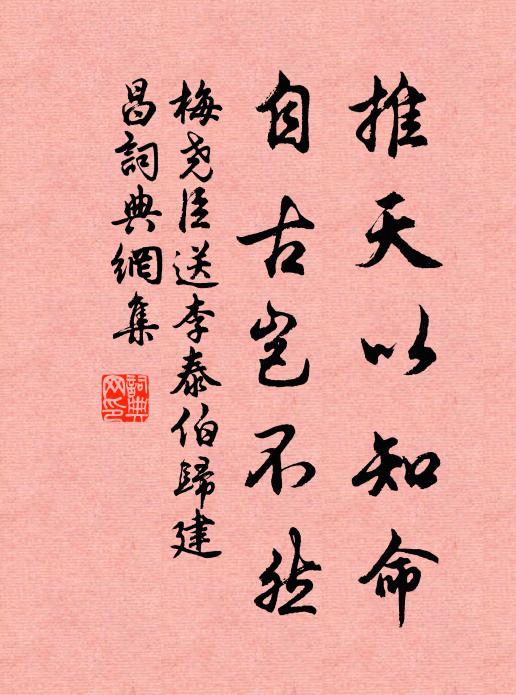 推天以知命
自古豈不然
梅尧臣送李泰伯歸建
昌詞典網集
詞典網印